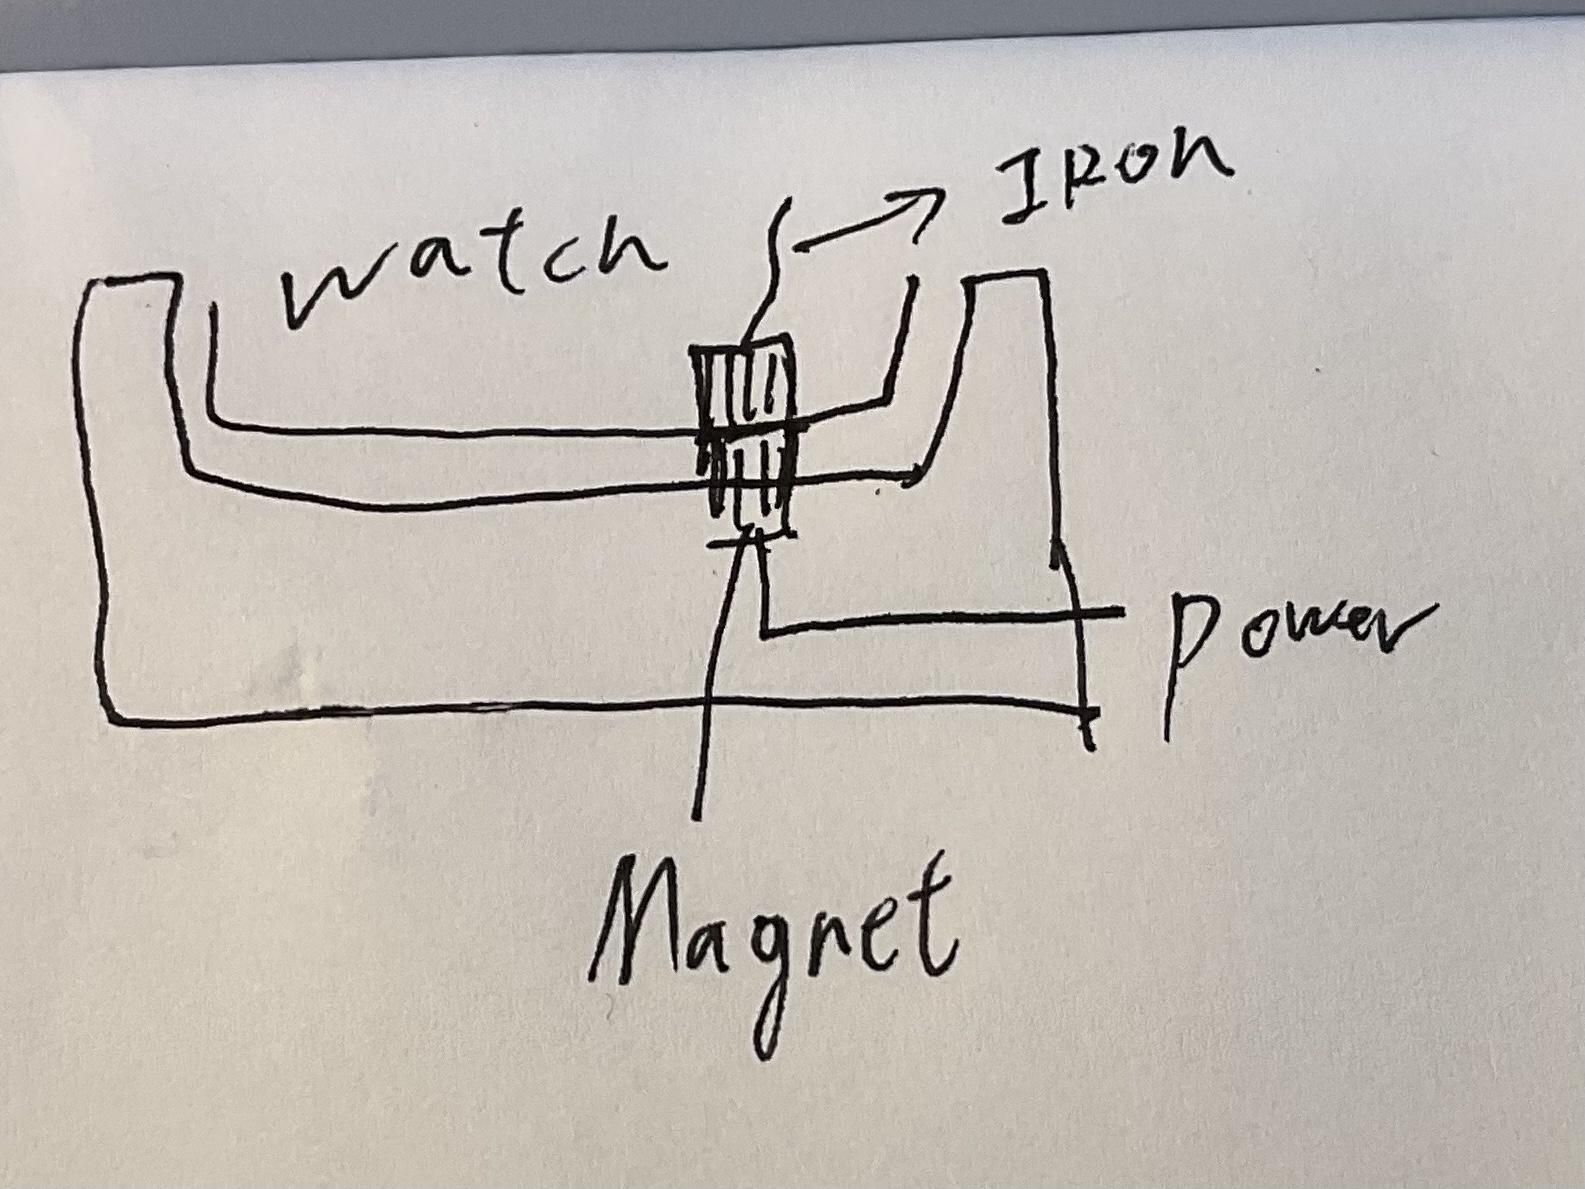 IRon
watch
power
Magnet